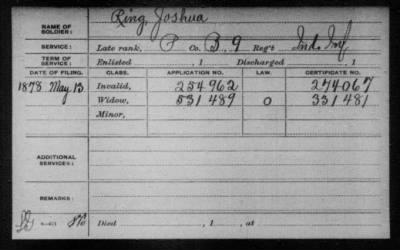 NAME OF SOLDIER: Ring, Joshua
SERVICE: Late rank, P Co. B, 9 Reg't Ind. Inf.
TERM OF SERVICE: Enlisted , 1 Discharged , 1
DATE OF FILING. CLASS. APPLICATION NO. LAW. CERTIFICATE NO.
1878 May 13 Invalid, 254962 274067
Widow, 531489 O 331481
Minor,
ADDITIONAL SERVICES:
REMARKS:
Died , 1 , at